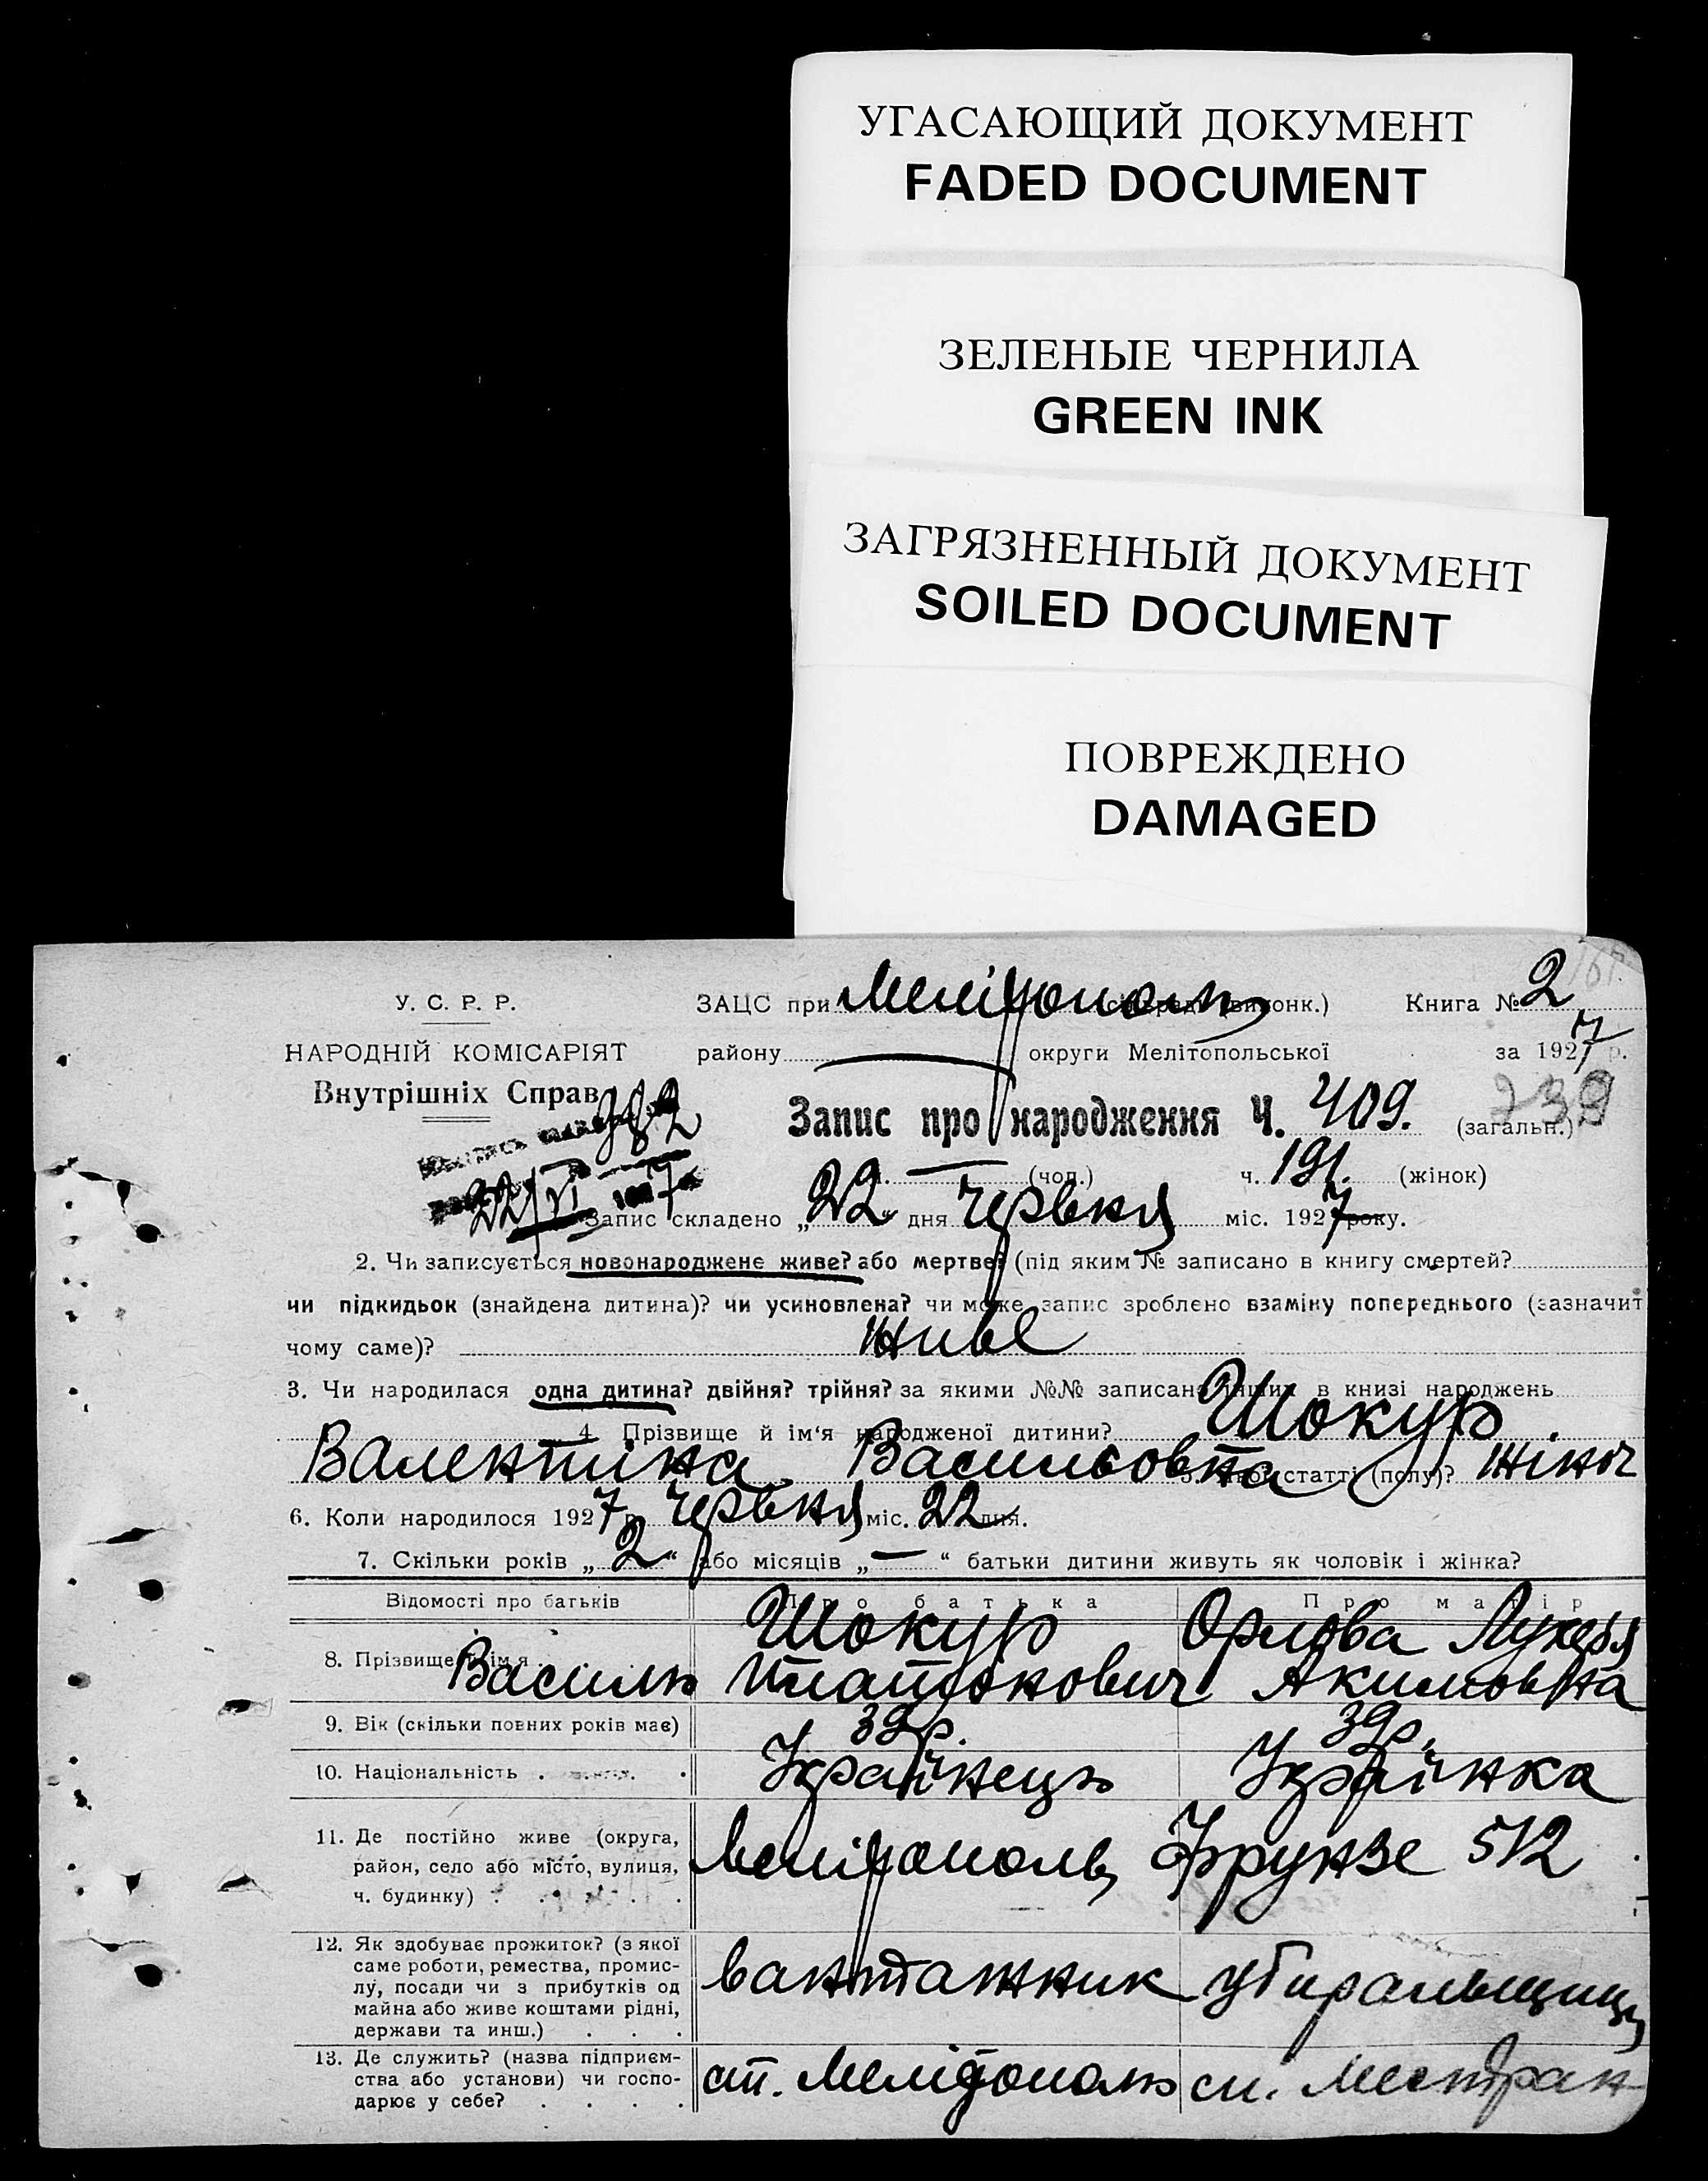 УГАСАЮЩИЙ ДОКУМЕНТ
FADED DOCUMENT
ЗЕЛЕНЫЕ ЧЕРНИЛА
GREEN INK
ЗАГРЯЗНЕННЫЙ ДОКУМЕНТ
SOILED DOCUMENT
ПОВРЕЖДЕНО
DAMAGED
У. С. Р. Р. ЗАЦС при Мелітополь Книга № 2
НАРОДНІЙ КОМІСАРІЯТ району округи Мелітопольської за 1927 р.
Внутрішніх Справ 982
Запис про народження Ч. 409. (загальн.) 239
22/VI 1927 (чол.) ч. 191. (жінок)
Запис складено „22“ дня Червня міс. 1927 року.
2. Чи записується новонароджене живе? або мертве? (під яким № записано в книгу смертей?
чи підкидьок (знайдена дитина)? чи усиновлена? чи може запис зроблено взаміну попереднього (зазначит
чому саме)? живе
3. Чи народилася одна дитина? двійня? трійня? за якими №№ записано інших в книзі народжень
4. Прізвище й ім'я народженої дитини? Шокур
Валентина Васильовна 5. Якої статті (полу)? жіноч
6. Коли народилося 1927 р. Червня міс. 22 дня.
7. Скільки років „2“ або місяців „—“ батьки дитини живуть як чоловік і жінка?
Відомості про батьків Про батька Про матір
Шокур Орлова Лукерья
8. Прізвище й ім'я . Василь Платонович Акимовна
9. Вік (скільки повних років має) 39р. 39р.
10. Національність . Українець Українка
11. Де постійно живе (округа,
район, село або місто, вулиця,
ч. будинку) Мелітополь Фрунзе 512
12. Як здобуває прожиток? (з якої
саме роботи, ремества, промис-
лу, посади чи з прибутків од
майна або живе коштами рідні,
держави та инш.) . . . вантажник убиральщиця
13. Де служить? (назва підприєм-
ства або установи) чи госпо-
дарює у себе? . . . . ст. Мелітополь